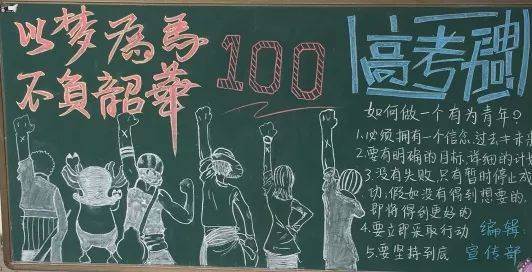 以梦为马
不负韶华
100
高考
如何做一个有为青年?
1.必须拥有一个信念,过去
2.要有明确的目标,详细的计
3.没有失败,只有暂时停止成
功,假如没有得到想要的,
即将得到更好的
4.要立即采取行动
5.要坚持到底
编辑:
宣传部